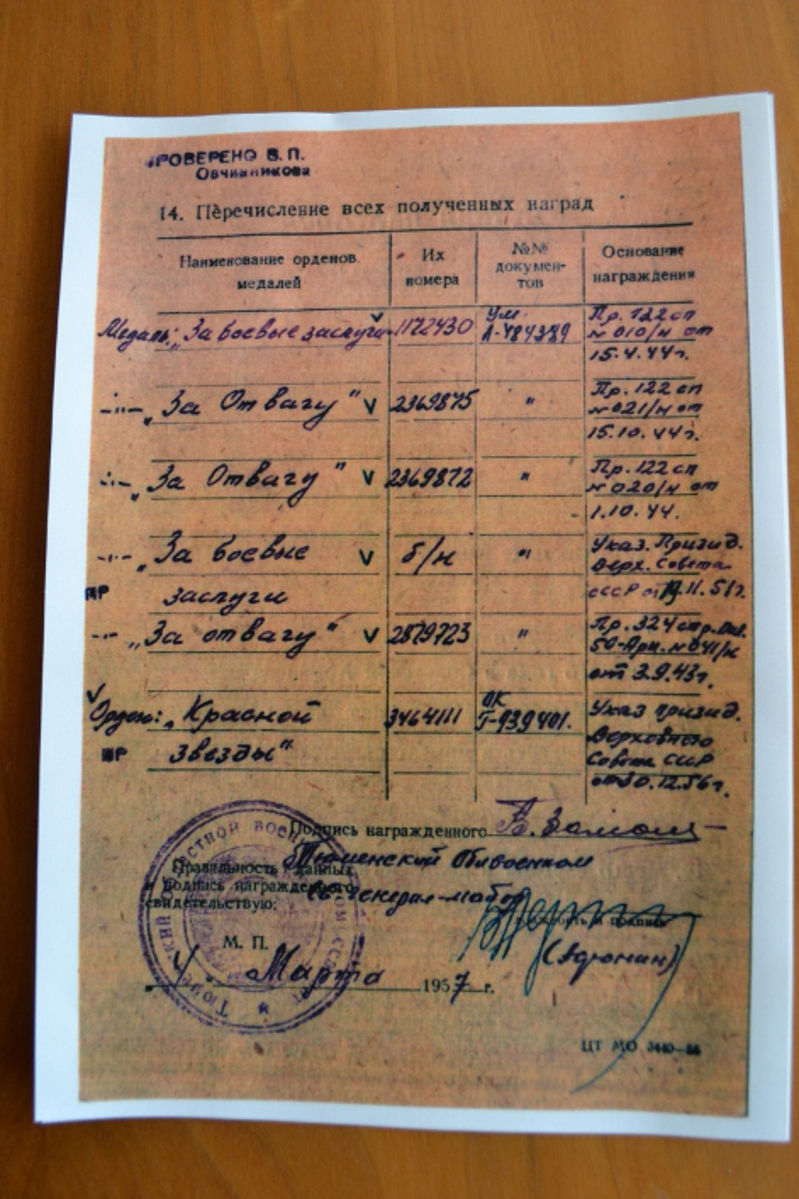 ПРОВЕРЕНО В. П.
Овчинникова
14. Перечисление всех полученных наград
Наименование орденов, медалей
Их номера
№№ документов
Основание награждения
Медаль: „За боевые заслуги" 1172430 Уд. Л-484389 Пр. 122 сп
№ 010/н от
15.4.44г.
-"- „За Отвагу" V 2369875 " Пр. 122 сп
№ 021/н от
15.10.44г.
-"- „За Отвагу" V 2369872 " Пр. 122 сп
№ 020/н от
1.10.44.
-"- „За боевые V б/н " Указ. Призид.
Верх. Совета
заслуги СССР от 19.11.51г.
-"- „За отвагу" V 2879723 " Пр. 324 стр. див.
50-Арм. № 041/н
от 3.9.43г.
V
Орден: „Красной 3464111 ОК Г-939401. Указ призид.
Верховного
Звезды" Совета СССР
от 30.12.56г.
Подпись награжденного
Тюменский Облвоенком
Правильность данных
и подпись награжденного генерал-майор
свидетельствую:
должность и подпись
М. П.
4. Марта 1957 г.
ЦТ МО 3440—56